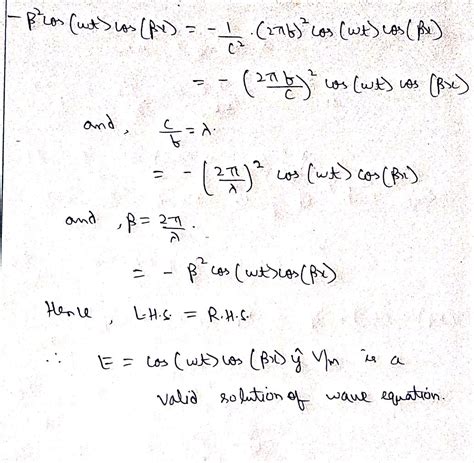 - β² cos(ωt) cos(βx) = - 1/c² · (2πf)² cos(ωt) cos(βx)
= - (2πf/c)² cos(ωt) cos(βx)
and, c/f = λ.
= - (2π/λ)² cos(ωt) cos(βx)
and, β = 2π/λ.
= - β² cos(ωt) cos(βx)
Hence, L.H.S. = R.H.S.
∴ E = cos(ωt) cos(βx) ŷ V/m is a
valid solution of wave equation.